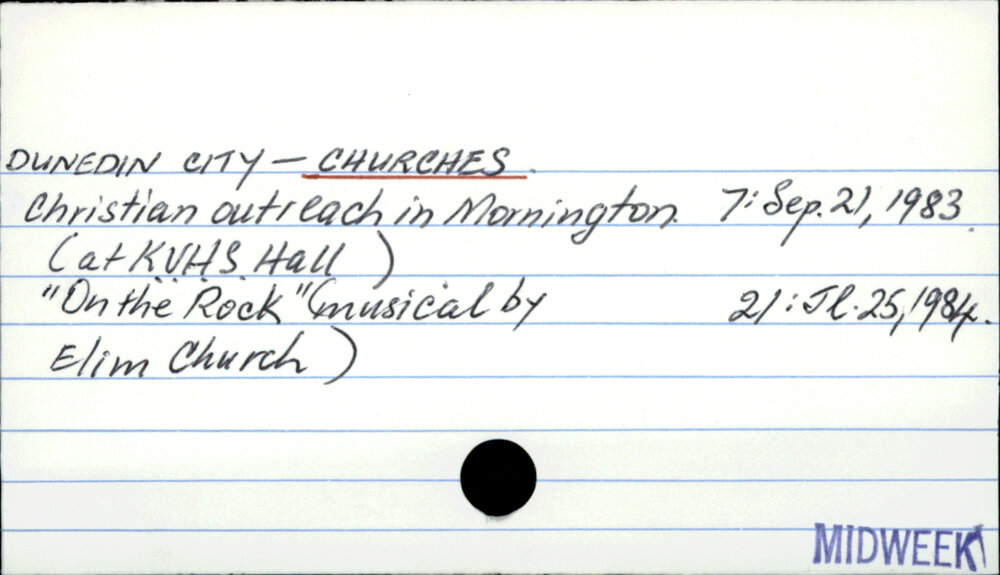 DUNEDIN CITY — CHURCHES.
Christian outreach in Mornington. 7: Sep. 21, 1983.
(at K.V.H.S. Hall)
"On the Rock" (musical by 21: Jl. 25, 1984.
Elim Church)
MIDWEEK